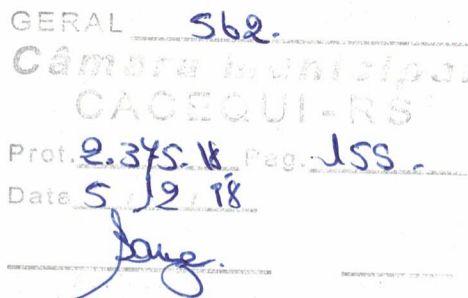 GERAL 562.
Câmara Municipal
CACEQUI-RS
Prot. 2.375.18 Pag. 155.
Data 5/12/18